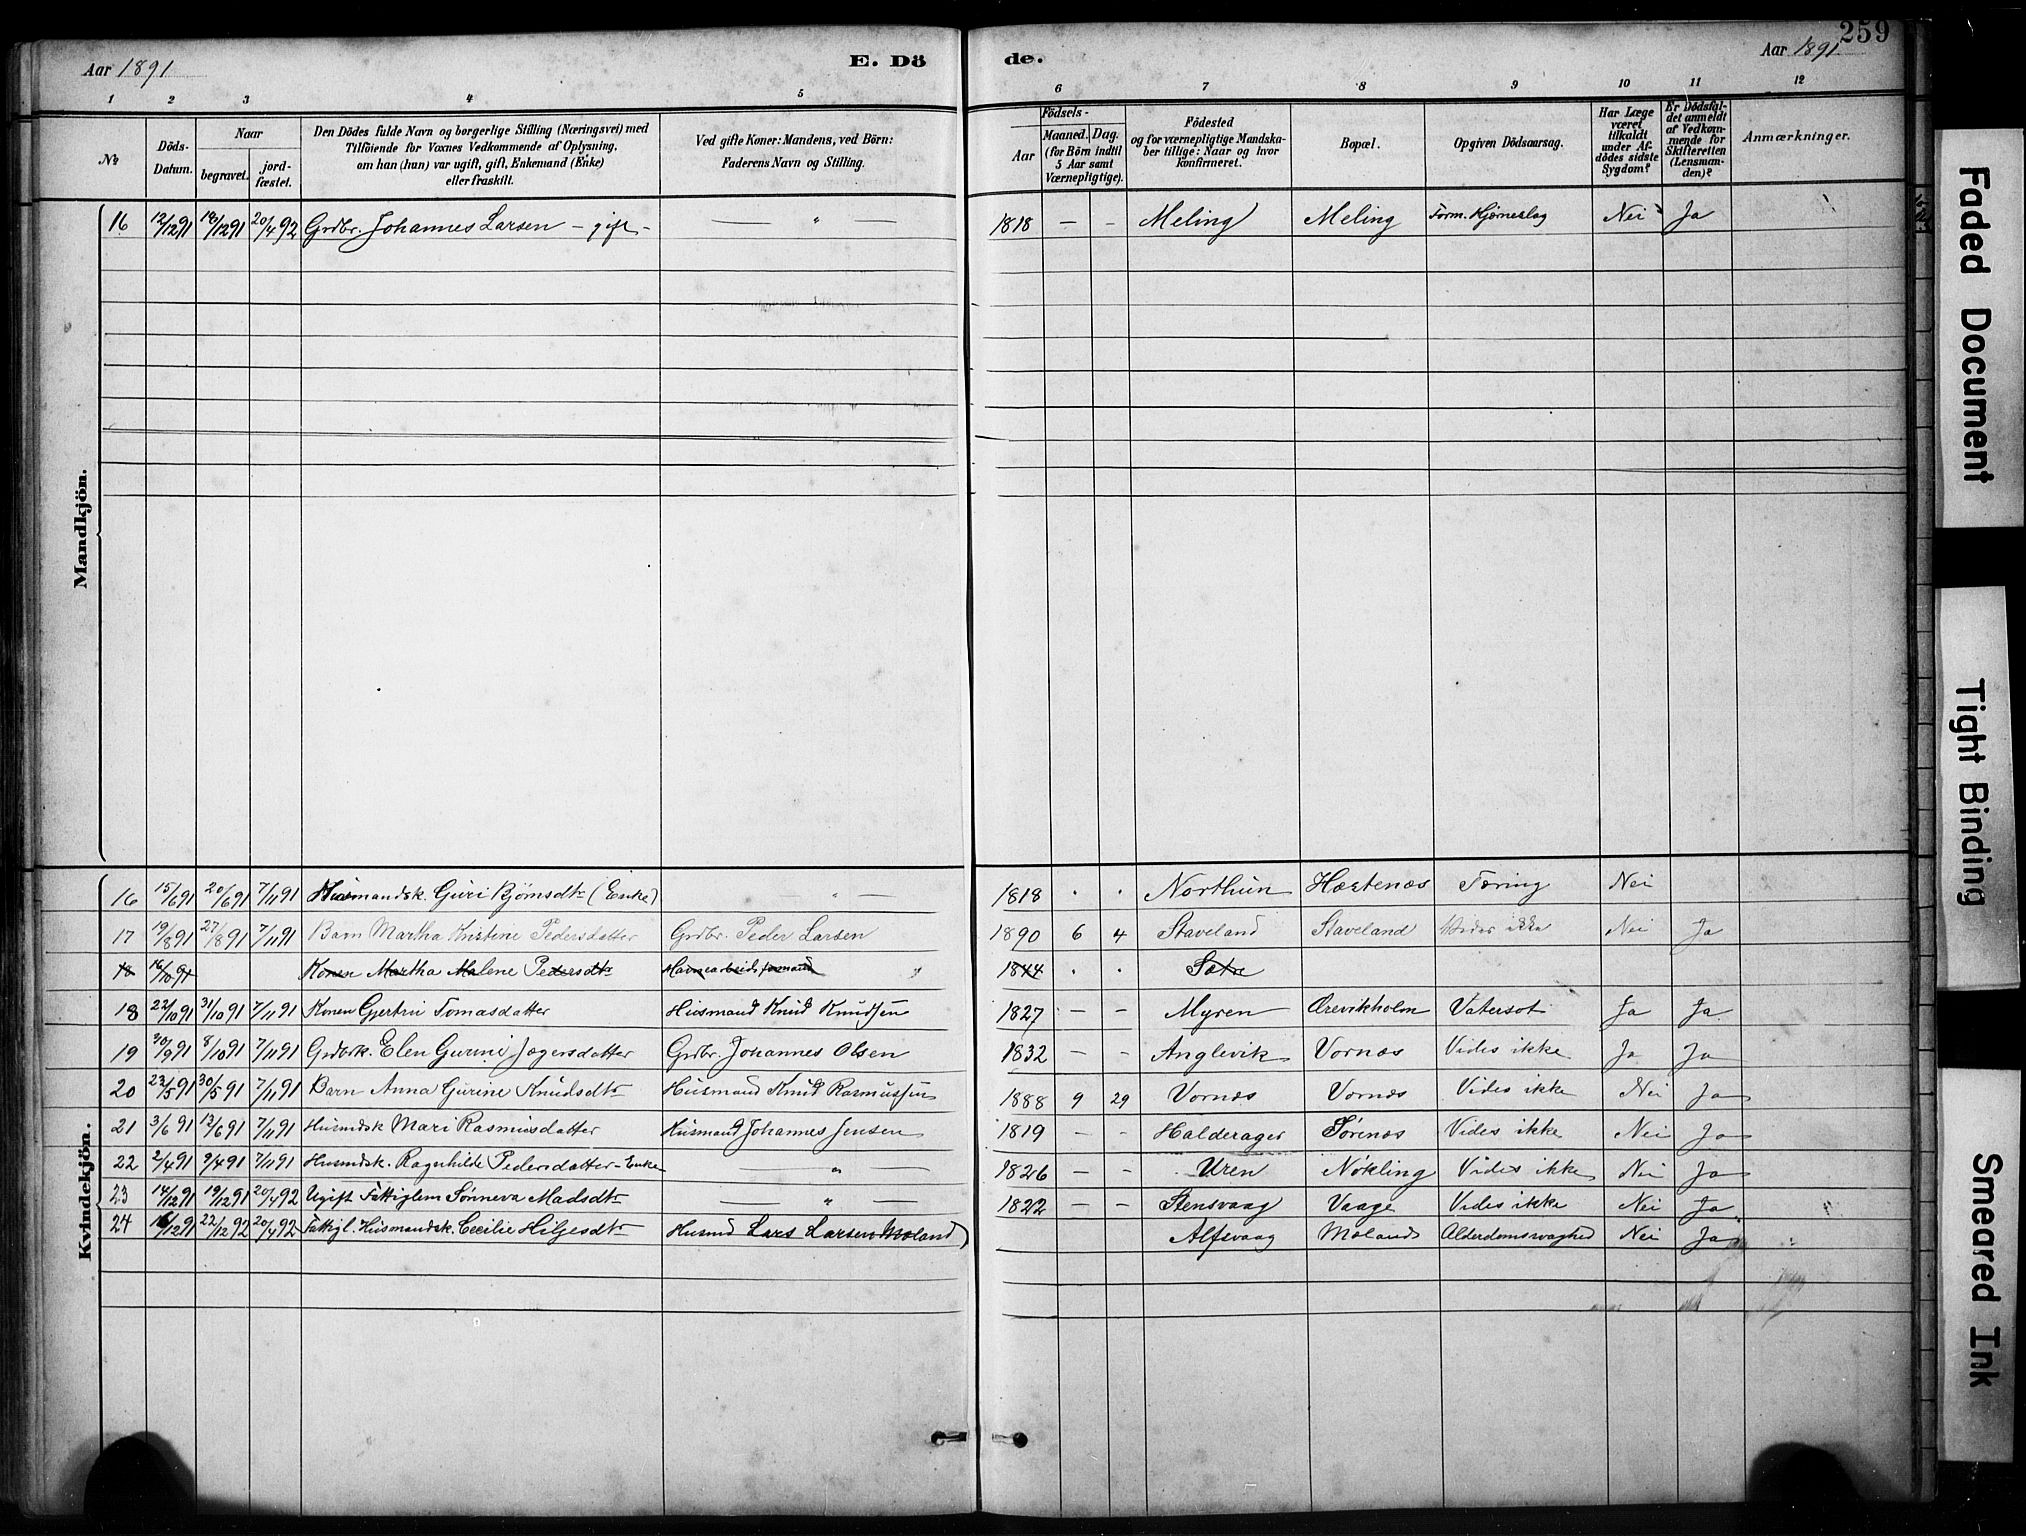 259
Aar 1891
E. Dö
de.
Aar 1891
1 2 3 4 5 6 7 8 9 10 11 12
No
Döds-Datum.
Naar
begravet.
jord-fæstet.
Den Dödes fulde Navn og borgerlige Stilling (Næringsvei) med
Tilföiende for Voxnes Vedkommende af Oplysning,
om han (hun) var ugift, gift, Enkemand (Enke)
eller fraskilt.
Ved gifte Koner: Mandens, ved Börn:
Faderens Navn og Stilling.
Födsels-
Aar
Maaned. Dag.
(for Börn indtil
5 Aar samt
Værnepligtige).
Födested
og for værnepligtige Mandska-
ber tillige: Naar og hvor
konfirmeret.
Bopæl.
Opgiven Dödsaarsag.
Har Læge
været
tilkaldt
under Af-
dödes sidste
Sygdom?
Er Dödsfal-
det anmeldt
af Vedkom-
mende for
Skifteretten
(Lensman-
den)?
Anmærkninger.
Mandkjön.
16 12/12 91 18/12 91 20/4 92 Grdbr. Johannes Larsen - gift - — " — 1818 — - Meling Meling Form. Hjerneslag Nei Ja
Kvindekjön.
16 15/6 91 20/6 91 7/11 91 Husmandsk. Guri Bjørnsdtr (Enke) " — 1818 . . Northun Hæstenæs Tæring Nei
17 19/8 91 27/8 91 7/11 91 Barn Martha Kristine Pedersdatter Grdbr. Peder Larsen 1890 6 4 Staveland Staveland Vides ikke Nei Ja
18 16/10 91 Konen Martha Malene Pedersdtr " 1844 . . Sætre
18 22/10 91 31/10 91 7/11 91 Konen Gjertru Tomasdatter Husmand Knud Knudsen 1827 — — Myren Ørevikholm Vatersot Ja Ja
19 30/9 91 8/10 91 7/11 91 Grdbrk. Elen Gurine Jægersdatter Grdbr. Johannes Olsen 1832 — — Anglevik Vornæs Vides ikke Ja Ja
20 23/5 91 30/5 91 7/11 91 Barn Anna Gurine Knudsdtr Husmand Knud Rasmussen 1888 9 29 Vornæs Vornæs Vides ikke Nei Ja
21 3/6 91 13/6 91 7/11 91 Husmdsk Mari Rasmusdatter Husmand Johannes Jensen 1819 — - Halderager Sørenæs Vides ikke Nei Ja
22 2/4 91 9/4 91 7/11 91 Husmdsk. Ragnhilde Pedersdatter - Enke — " — 1826 — - Uren Nøkling Vides ikke Nei Ja
23 14/12 91 19/12 91 20/4 92 Ugift Fattiglem Sønneva Madsdtr — " — 1822 — — Stensvaag Vaage Vides ikke Nei Ja
24 16/12 91 22/12 92 20/4 92 Fattigl. Husmandsk. Cecilie Hilgesdtr Husmd Lars Larsen Moland Alfsvaag Molands Alderdomssvaghed Nei Ja
Faded Document
Tight Binding
Smeared Ink